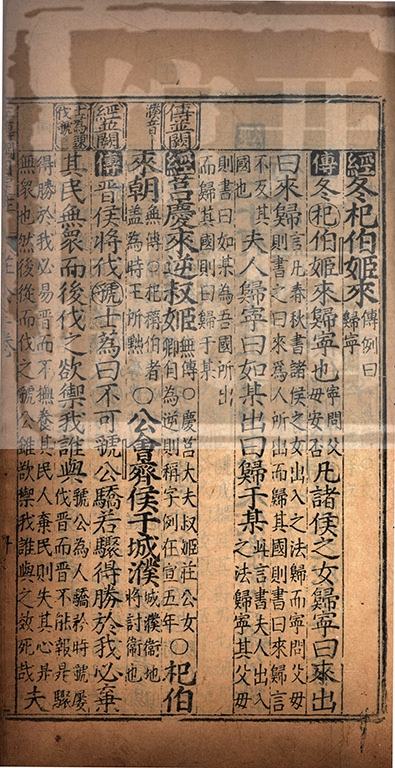 經冬杞伯姬來傳例曰歸寧
傳冬杞伯姬來歸寧也寧問父母安否凡諸侯之女歸寧曰來出
曰來歸言凡春秋書諸侯之女出入之法歸而寧問父母則書之曰來為人所出而歸其國則書曰來歸言不反其
國也夫人歸寧曰如某出曰歸于某此言書夫人出入之法歸寧其父母
則書曰如某為吾國所出而歸其國則曰歸于某
傳並闕
經莒慶來逆叔姬無傳○慶莒大夫叔姬莊公女卿自為逆則稱字例在宣五年○杞伯
濮音
來朝無傳○杞稱伯者蓋為時王所黜○公會齊侯于城濮城濮衛地將討衛也
經並闕
傳晉侯將伐虢士蒍曰不可虢公驕若驟得勝於我必棄
其民無眾而後伐之欲禦我誰與虢公為人驕矜時虢屢伐晉而晉不能報是驟
得勝於我必易晉而不撫養其民人棄民則失其心是
無眾也然後從而伐之虢公雖欲禦我誰與之效死哉夫